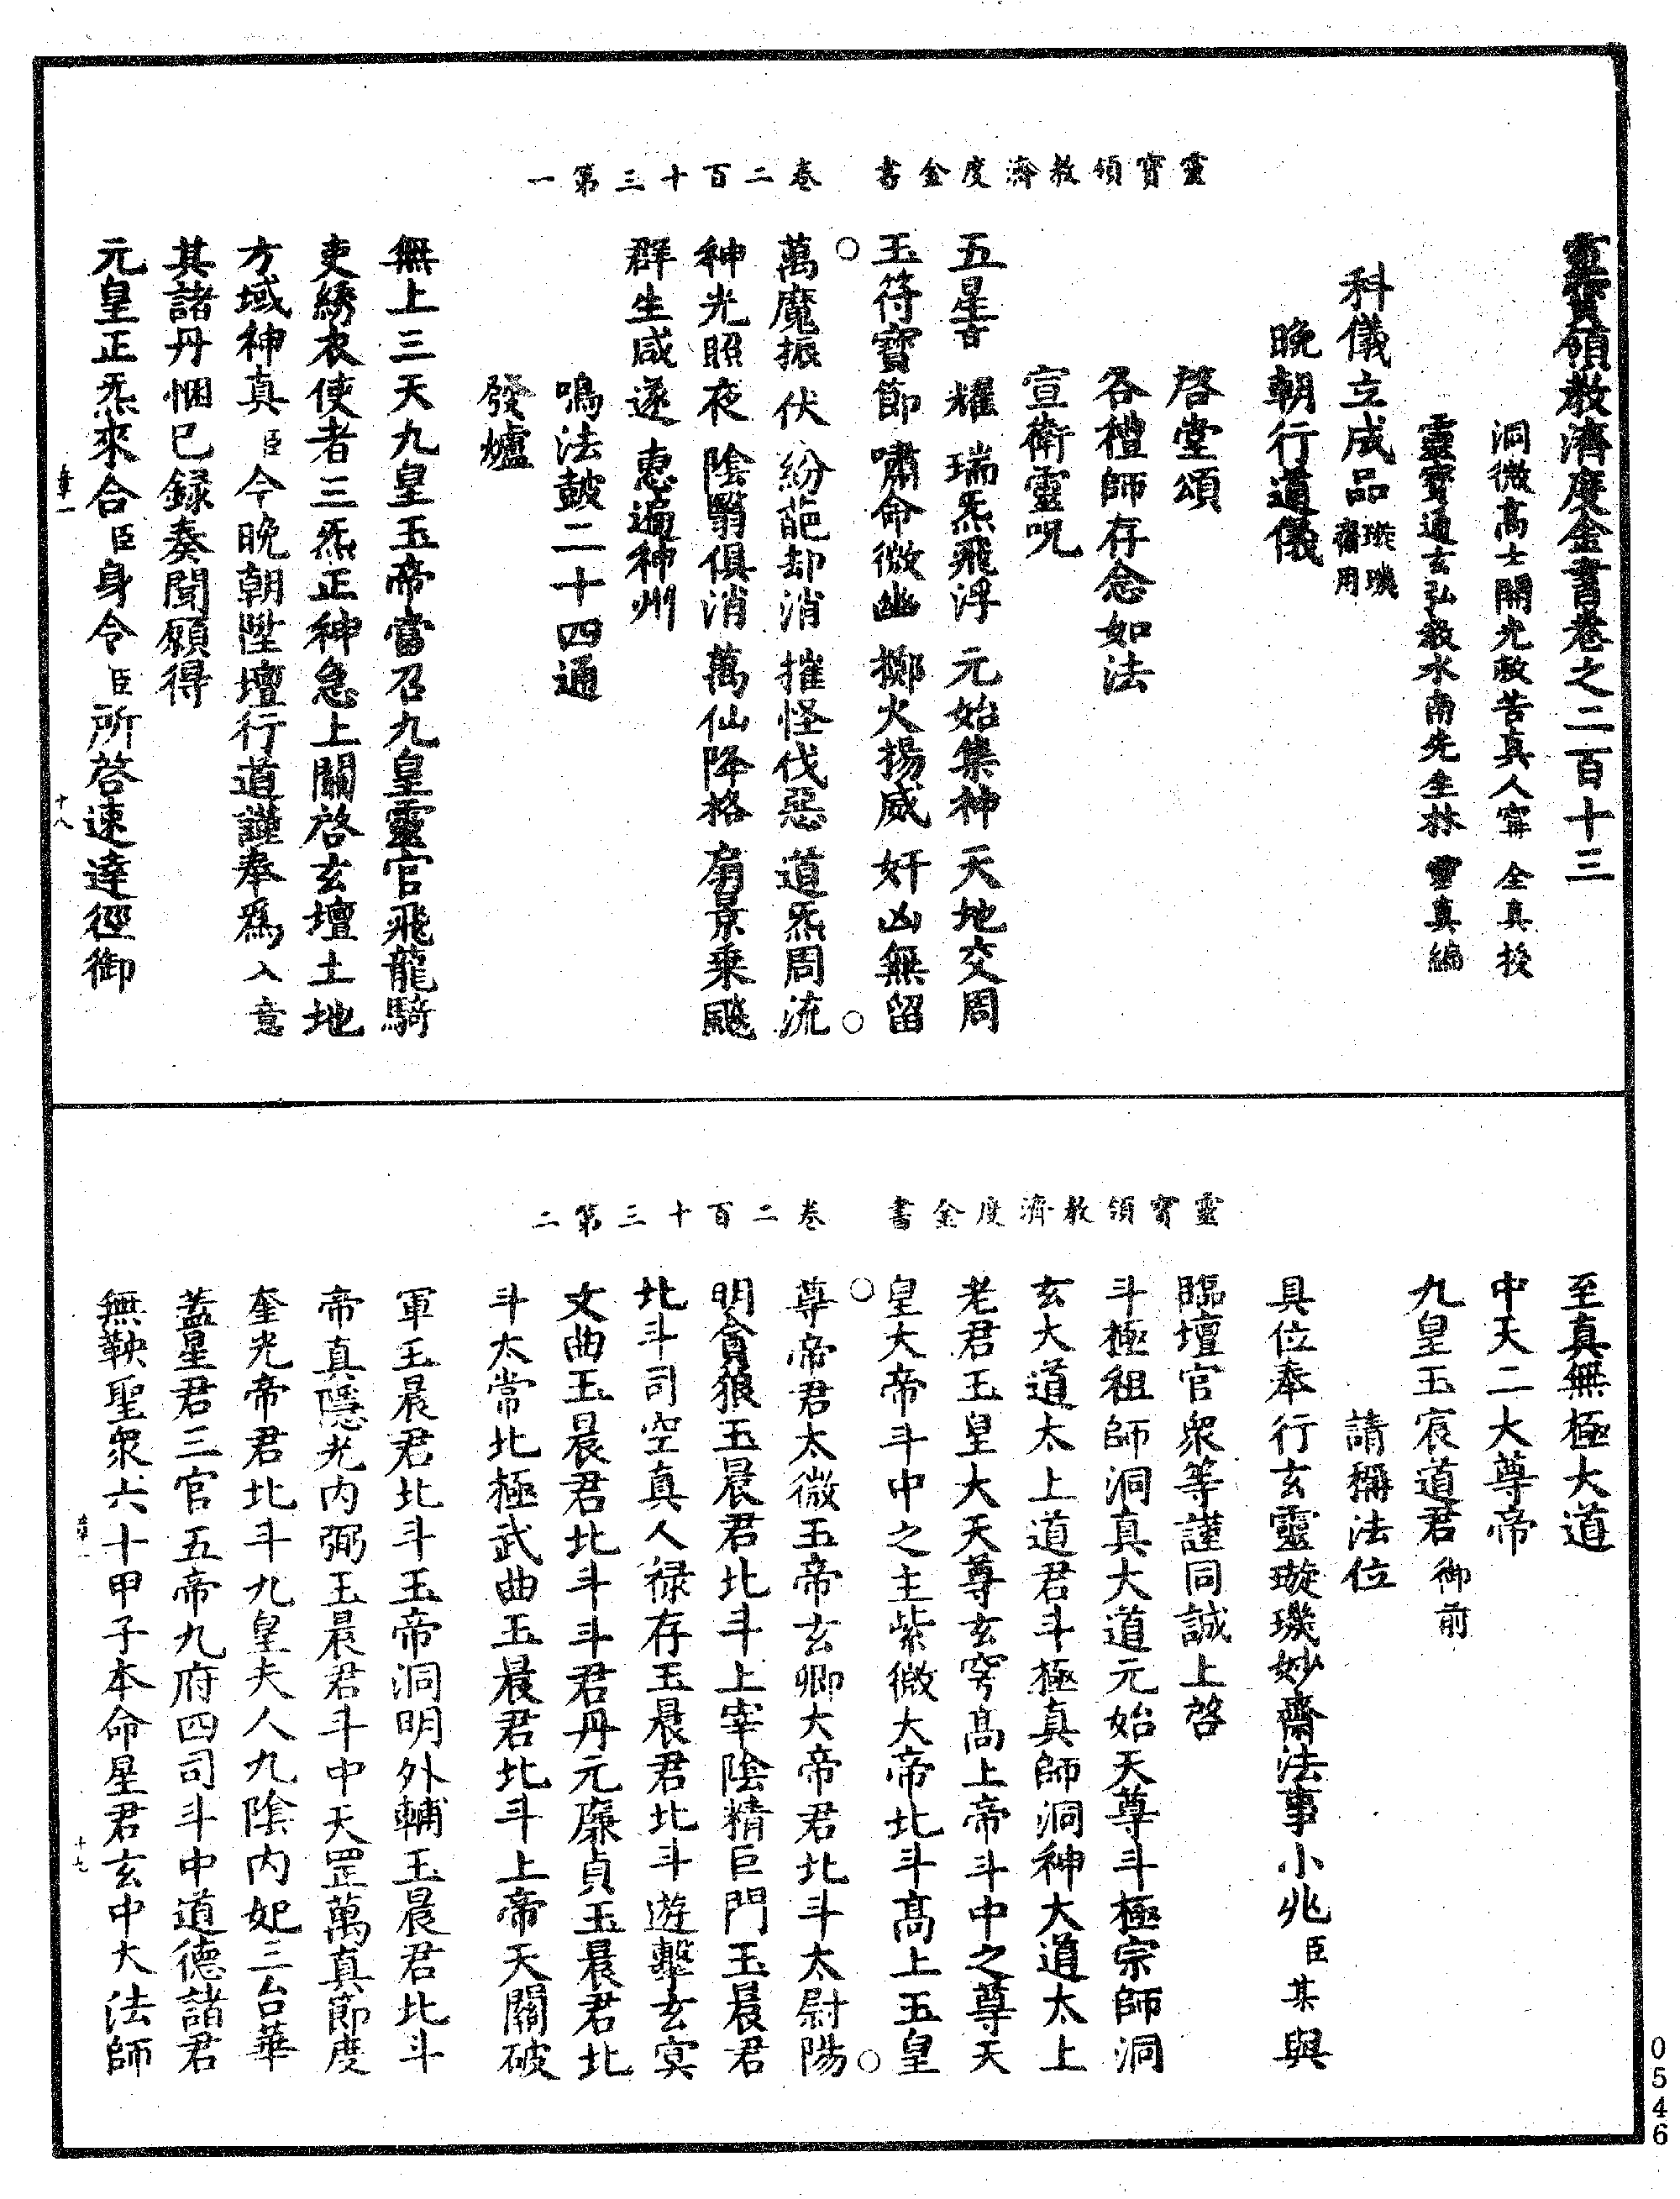 靈寶領教濟度金書 卷二百十三第一
靈寶領教濟度金書卷之二百十三
洞微高士開光救苦真人甯 全真授
靈寶通玄弘教水南先生林 靈真編
科儀立成品璇璣齋用
晚朝行道儀
啓堂頌
各禮師存念如法
宣衛靈呪
五星吉耀 瑞炁飛浮 元始集神 天地交周
玉符寶節 嘯命微幽 擲火揚威 奸凶無留
萬魔振伏 紛葩却消 摧怪伐惡 道炁周流
神光照夜 陰翳俱消 萬仙降格 扇景乘飈
群生咸遂 惠遍神州
鳴法鼓二十四通
發爐
無上三天九皇玉帝當召九皇靈官飛龍騎
吏綉衣使者三炁正神急上關啓玄壇土地
方域神真臣今晚朝陞壇行道謹奉爲入意
其諸丹悃已録奏聞願得
元皇正炁來合臣身令臣所啓速達徑御
十八
靈寶領教濟度金書 卷二百十三第二
至真無極大道
中天二大尊帝
九皇玉宸道君御前
請稱法位
具位奉行玄靈璇璣妙齋法事小兆臣某與
臨壇官衆等謹同誠上啓
斗極祖師洞真大道元始天尊斗極宗師洞
玄大道太上道君斗極真師洞神大道太上
老君玉皇大天尊玄穹高上帝斗中之尊天
皇大帝斗中之主紫微大帝北斗高上玉皇
尊帝君太微玉帝玄卿大帝君北斗太尉陽
明貪狼玉晨君北斗上宰陰精巨門玉晨君
北斗司空真人禄存玉晨君北斗遊擊玄冥
文曲玉晨君北斗斗君丹元廉貞玉晨君北
斗太常北極武曲玉晨君北斗上帝天關破
軍玉晨君北斗玉帝洞明外輔玉晨君北斗
帝真隱光内弼玉晨君斗中天罡萬真節度
奎光帝君北斗九皇夫人九陰内妃三台華
蓋星君三官五帝九府四司斗中道德諸君
無鞅聖衆六十甲子本命星君玄中大法師
0546